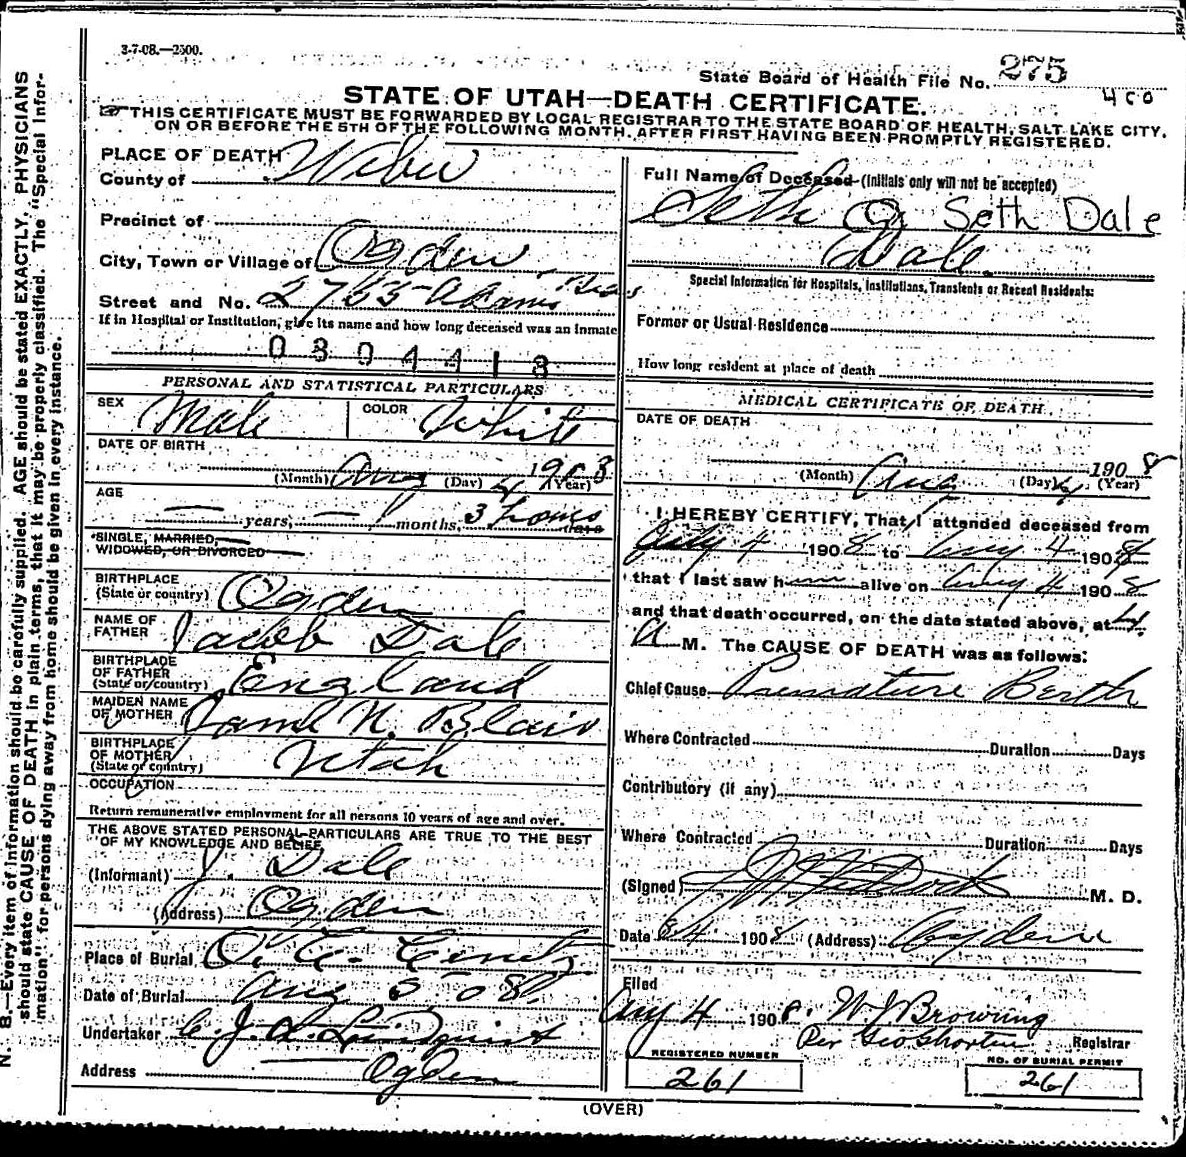 3-7-08.—2500.
State Board of Health File No. 275
400
STATE OF UTAH—DEATH CERTIFICATE.
THIS CERTIFICATE MUST BE FORWARDED BY LOCAL REGISTRAR TO THE STATE BOARD OF HEALTH, SALT LAKE CITY,
ON OR BEFORE THE 5TH OF THE FOLLOWING MONTH, AFTER FIRST HAVING BEEN PROMPTLY REGISTERED.
N. B.—Every item of information should be carefully supplied. AGE should be stated EXACTLY. PHYSICIANS
should state CAUSE OF DEATH in plain terms, that it may be properly classified. The "Special Infor-
mation" for persons dying away from home should be given in every instance.
PLACE OF DEATH
County of Weber
Precinct of
City, Town or Village of Ogden
Street and No. 2765 Adams
If in Hospital or Institution, give its name and how long deceased was an inmate
0304413
PERSONAL AND STATISTICAL PARTICULARS
SEX Male COLOR White
DATE OF BIRTH
(Month) Aug (Day) 4 1908 (Year)
AGE
— years, — months, 3 hours days
SINGLE, MARRIED,
WIDOWED, OR DIVORCED
BIRTHPLACE
(State or country) Ogden
NAME OF
FATHER Jacob Dale
BIRTHPLACE
OF FATHER
(State or country) England
MAIDEN NAME
OF MOTHER N. Blair
BIRTHPLACE
OF MOTHER
(State or country) Utah
OCCUPATION
Return remunerative employment for all persons 10 years of age and over.
THE ABOVE STATED PERSONAL PARTICULARS ARE TRUE TO THE BEST
OF MY KNOWLEDGE AND BELIEF
(Informant) J. Dale
(Address) Ogden
Place of Burial
Date of Burial Aug 5 08
Undertaker Lindquist
Address Ogden
Full Name of Deceased (Initials only will not be accepted)
Seth Seth Dale
Dale
Special Information for Hospitals, Institutions, Transients or Recent Residents:
Former or Usual Residence
How long resident at place of death
MEDICAL CERTIFICATE OF DEATH
DATE OF DEATH
(Month) Aug (Day) 4 1908 (Year)
I HEREBY CERTIFY, That I attended deceased from
July 4 1908 to Aug 4 1908
that I last saw him alive on Aug 4 1908
and that death occurred, on the date stated above, at 4
A M. The CAUSE OF DEATH was as follows:
Chief Cause Premature Berth
Where Contracted Duration Days
Contributory (if any)
Where Contracted Duration Days
(Signed) M. D.
Date 8/4 1908 (Address) Ogden
Filed
Aug 4 1908. W J Browning
Per Geo Shorten Registrar
REGISTERED NUMBER
261
NO. OF BURIAL PERMIT
261
(OVER)